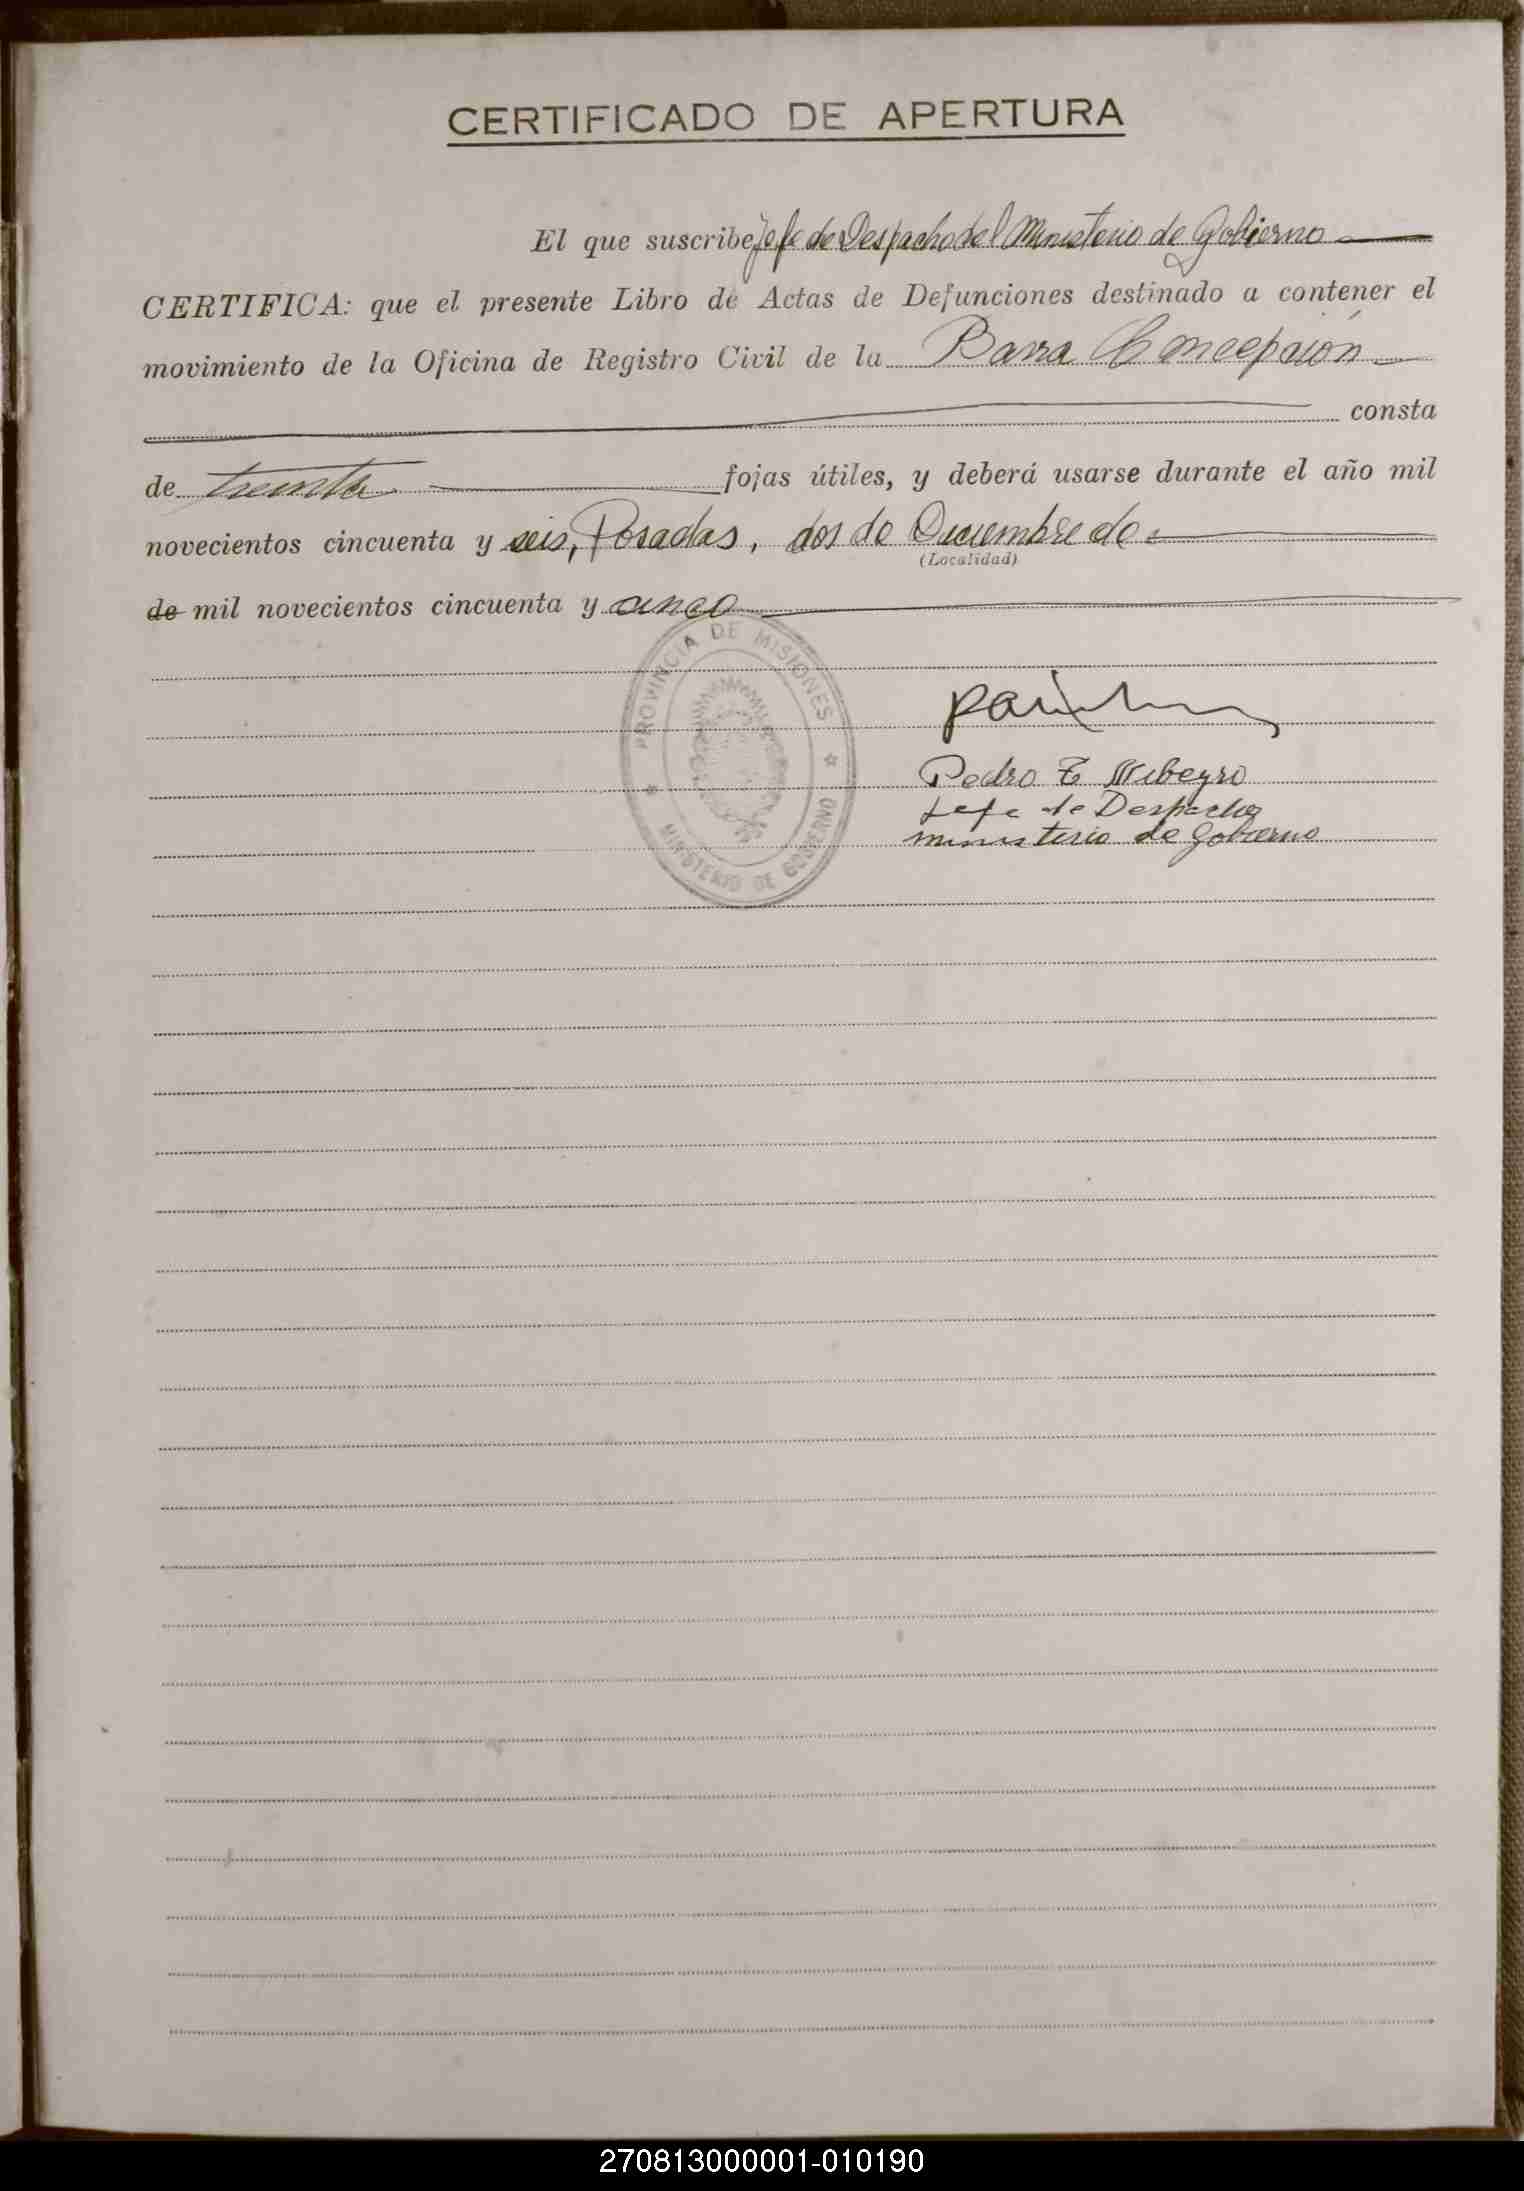 CERTIFICADO DE APERTURA
El que suscribe Jefe de Despacho del Ministerio de Gobierno
CERTIFICA: que el presente Libro de Actas de Defunciones destinado a contener el
movimiento de la Oficina de Registro Civil de la Barra Concepción
consta
de treinta fojas útiles, y deberá usarse durante el año mil
novecientos cincuenta y seis, Posadas, dos de Diciembre de
(Localidad)
de mil novecientos cincuenta y cinco
PROVINCIA DE MISIONES
MINISTERIO DE GOBIERNO
Pedro E Ribeyro
Jefe de Despacho
ministerio de Gobierno
270813000001-010190